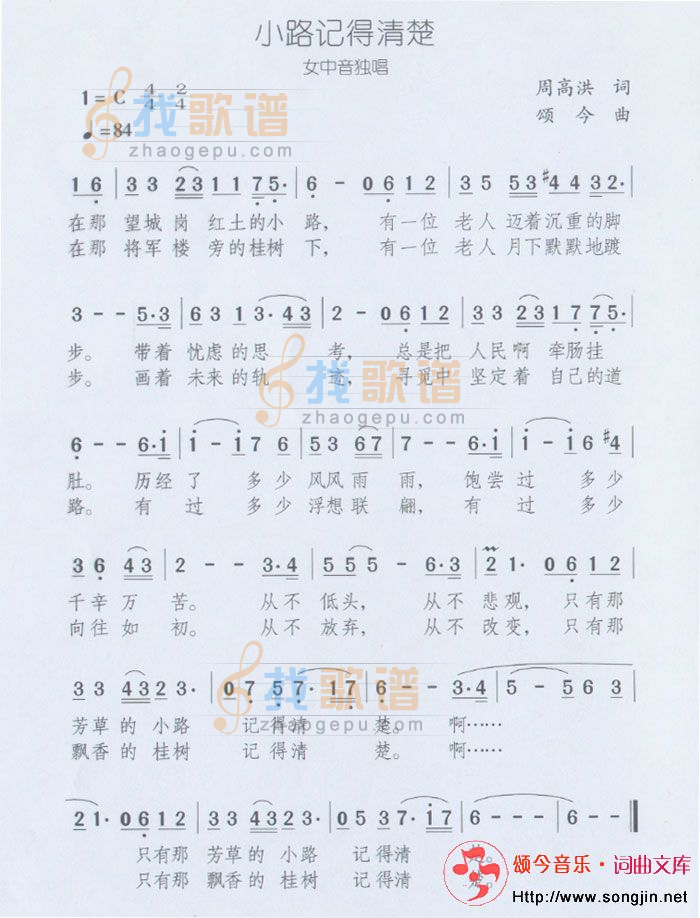 小路记得清楚
女中音独唱
1=C 4/4 2/4
周高洪 词
♩=84
颂今 曲
找歌谱
zhaogepu.com
1 6 | 3 3 2 3 1 1 7 5· | 6 - 0 6 1 2 | 3 5 5 3 #4 4 3 2· |
在那 望城岗 红土的小 路, 有一位 老人 迈着沉重的脚
在那 将军楼 旁的桂树 下, 有一位 老人 月下默默地踱
3 - - 5·3 | 6 3 1 3·4 3 | 2 - 0 6 1 2 | 3 3 2 3 1 7 7 5· |
步。 带着 忧虑的思 考, 总是把 人民啊 牵肠挂
步。 画着 未来的轨 迹, 寻觅中 坚定着 自己的道
找歌谱
zhaogepu.com
6 - - 6·1 | 1 - 1 7 6 | 5 3 6 7 | 7 - - 6·1 | 1 - 1 6 #4 |
肚。 历经了 多少 风风雨 雨, 饱尝过 多少
路。 有过 多少 浮想联 翩, 有过 多少
3 6 4 3 | 2 - - 3·4 | 5 5 5 - 6·3 | 2 1· 0 6 1 2 |
千辛万 苦。 从不 低头, 从不 悲观, 只有那
向往如 初。 从不 放弃, 从不 改变, 只有那
找歌谱
zhaogepu.com
3 3 4 3 2 3· | 0 7 5 7·1 7 | 6 - - 3·4 | 5 - 5 6 3 |
芳草的 小路 记得清 楚。 啊……
飘香的 桂树 记得清 楚。 啊……
2 1· 0 6 1 2 | 3 3 4 3 2 3· | 0 5 3 7·1 7 | 6 - - - | 6 - - ‖
只有那 芳草的 小路 记得清 楚。
只有那 飘香的 桂树 记得清 楚。
颂今音乐·词曲文库
Http://www.songjin.net